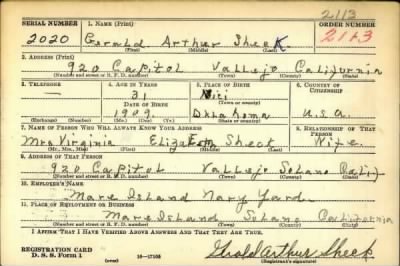 2113
SERIAL NUMBER 1. NAME (Print) ORDER NUMBER
2020 Gerald Arthur Sheek 2113
(First) (Middle) (Last)
2. ADDRESS (Print)
920 Capitol Vallejo California
(Number and street or R. F. D. number) (Town) (County) (State)
3. TELEPHONE 4. AGE IN YEARS 5. PLACE OF BIRTH 6. COUNTRY OF CITIZENSHIP
31 Vici
DATE OF BIRTH (Town or county)
1909 Oklahoma U.S.A
(Exchange) (Number) (Mo.) (Day) (Yr.) (State or country)
7. NAME OF PERSON WHO WILL ALWAYS KNOW YOUR ADDRESS 8. RELATIONSHIP OF THAT PERSON
Mrs Virginia Elizabeth Sheek Wife
(Mr., Mrs., Miss) (First) (Middle) (Last)
9. ADDRESS OF THAT PERSON
920 Capitol Vallejo Solano Calif
(Number and street or R. F. D. number) (Town) (County) (State)
10. EMPLOYER'S NAME
Mare Island Navy Yard
11. PLACE OF EMPLOYMENT OR BUSINESS
Mare Island Solano California
(Number and street or R. F. D. number) (Town) (County) (State)
I AFFIRM THAT I HAVE VERIFIED ABOVE ANSWERS AND THAT THEY ARE TRUE.
REGISTRATION CARD
D. S. S. Form 1 (over) 16—17105
Gerald Arthur Sheek
(Registrant's signature)